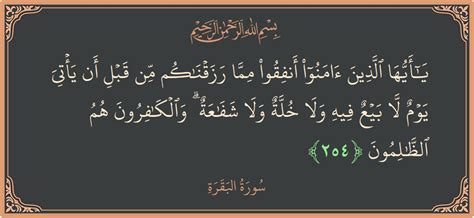 بِسْمِ اللَّهِ الرَّحْمَٰنِ الرَّحِيمِ
يَـٰٓأَيُّهَا ٱلَّذِينَ ءَامَنُوٓا۟ أَنفِقُوا۟ مِمَّا رَزَقْنَـٰكُم مِّن قَبْلِ أَن يَأْتِىَ
يَوْمٌ لَّا بَيْعٌ فِيهِ وَلَا خُلَّةٌ وَلَا شَفَـٰعَةٌ ۗ وَٱلْكَـٰفِرُونَ هُمُ
ٱلظَّـٰلِمُونَ ﴿٢٥٤﴾
سُورَةُ البَقَرَةِ